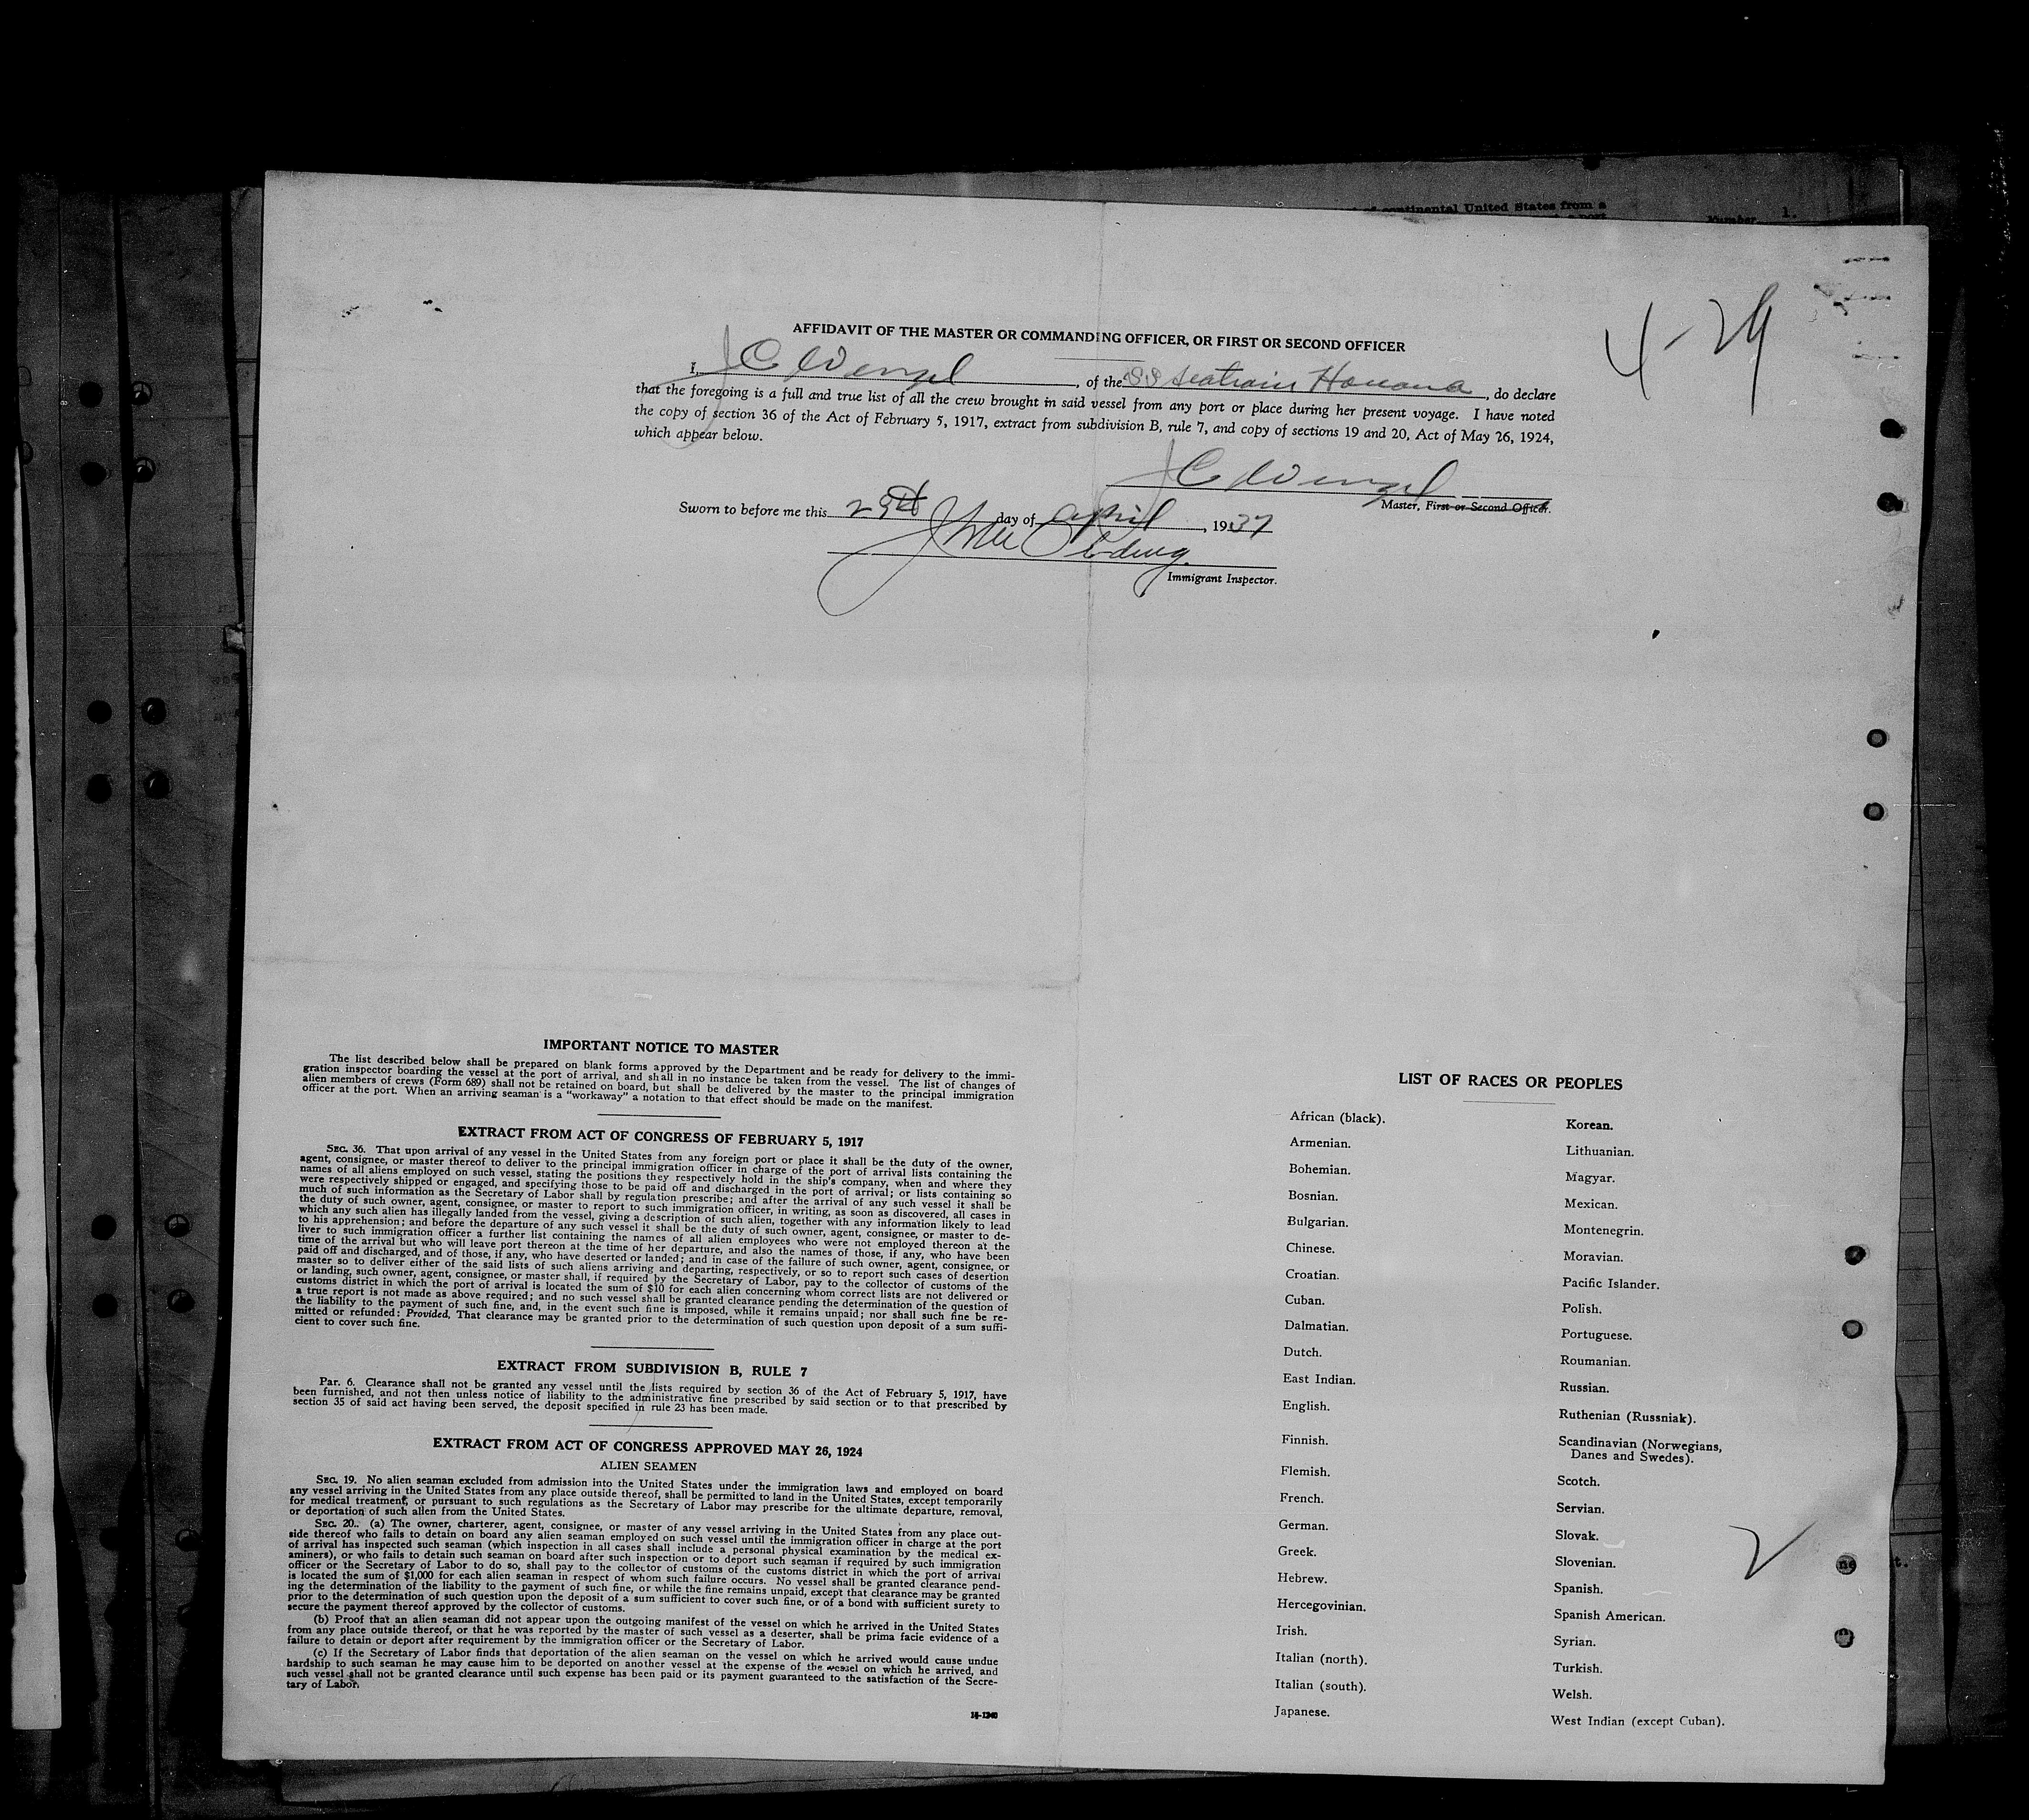 of continental United States from a
Number 1.
4-29
AFFIDAVIT OF THE MASTER OR COMMANDING OFFICER, OR FIRST OR SECOND OFFICER
I, J C Wenzel, of the SS Seatrain Havana, do declare
that the foregoing is a full and true list of all the crew brought in said vessel from any port or place during her present voyage. I have noted
the copy of section 36 of the Act of February 5, 1917, extract from subdivision B, rule 7, and copy of sections 19 and 20, Act of May 26, 1924,
which appear below.
J C Wenzel
Master, First or Second Officer.
Sworn to before me this 29th day of April, 1937
Immigrant Inspector.
IMPORTANT NOTICE TO MASTER
The list described below shall be prepared on blank forms approved by the Department and be ready for delivery to the immi-
gration inspector boarding the vessel at the port of arrival, and shall in no instance be taken from the vessel. The list of changes of
alien members of crews (Form 689) shall not be retained on board, but shall be delivered by the master to the principal immigration
officer at the port. When an arriving seaman is a "workaway" a notation to that effect should be made on the manifest.
EXTRACT FROM ACT OF CONGRESS OF FEBRUARY 5, 1917
SEC. 36. That upon arrival of any vessel in the United States from any foreign port or place it shall be the duty of the owner,
agent, consignee, or master thereof to deliver to the principal immigration officer in charge of the port of arrival lists containing the
names of all aliens employed on such vessel, stating the positions they respectively hold in the ship's company, when and where they
were respectively shipped or engaged, and specifying those to be paid off and discharged in the port of arrival; or lists containing so
much of such information as the Secretary of Labor shall by regulation prescribe; and after the arrival of any such vessel it shall be
the duty of such owner, agent, consignee, or master to report to such immigration officer, in writing, as soon as discovered, all cases in
which any such alien has illegally landed from the vessel, giving a description of such alien, together with any information likely to lead
to his apprehension; and before the departure of any such vessel it shall be the duty of such owner, agent, consignee, or master to de-
liver to such immigration officer a further list containing the names of all alien employees who were not employed thereon at the
time of the arrival but who will leave port thereon at the time of her departure, and also the names of those, if any, who have been
paid off and discharged, and of those, if any, who have deserted or landed; and in case of the failure of such owner, agent, consignee, or
master so to deliver either of the said lists of such aliens arriving and departing, respectively, or so to report such cases of desertion
or landing, such owner, agent, consignee, or master shall, if required by the Secretary of Labor, pay to the collector of customs of the
customs district in which the port of arrival is located the sum of $10 for each alien concerning whom correct lists are not delivered or
a true report is not made as above required; and no such vessel shall be granted clearance pending the determination of the question of
the liability to the payment of such fine, and, in the event such fine is imposed, while it remains unpaid; nor shall such fine be re-
mitted or refunded: Provided, That clearance may be granted prior to the determination of such question upon deposit of a sum suffi-
cient to cover such fine.
EXTRACT FROM SUBDIVISION B, RULE 7
Par. 6. Clearance shall not be granted any vessel until the lists required by section 36 of the Act of February 5, 1917, have
been furnished, and not then unless notice of liability to the administrative fine prescribed by said section or to that prescribed by
section 35 of said act having been served, the deposit specified in rule 23 has been made.
EXTRACT FROM ACT OF CONGRESS APPROVED MAY 26, 1924
ALIEN SEAMEN
SEC. 19. No alien seaman excluded from admission into the United States under the immigration laws and employed on board
any vessel arriving in the United States from any place outside thereof, shall be permitted to land in the United States, except temporarily
for medical treatment, or pursuant to such regulations as the Secretary of Labor may prescribe for the ultimate departure, removal,
or deportation of such alien from the United States.
SEC. 20. (a) The owner, charterer, agent, consignee, or master of any vessel arriving in the United States from any place out-
side thereof who fails to detain on board any alien seaman employed on such vessel until the immigration officer in charge at the port
of arrival has inspected such seaman (which inspection in all cases shall include a personal physical examination by the medical ex-
aminers), or who fails to detain such seaman on board after such inspection or to deport such seaman if required by such immigration
officer or the Secretary of Labor to do so, shall pay to the collector of customs of the customs district in which the port of arrival
is located the sum of $1,000 for each alien seaman in respect of whom such failure occurs. No vessel shall be granted clearance pend-
ing the determination of the liability to the payment of such fine, or while the fine remains unpaid, except that clearance may be granted
prior to the determination of such question upon the deposit of a sum sufficient to cover such fine, or of a bond with sufficient surety to
secure the payment thereof approved by the collector of customs.
(b) Proof that an alien seaman did not appear upon the outgoing manifest of the vessel on which he arrived in the United States
from any place outside thereof, or that he was reported by the master of such vessel as a deserter, shall be prima facie evidence of a
failure to detain or deport after requirement by the immigration officer or the Secretary of Labor.
(c) If the Secretary of Labor finds that deportation of the alien seaman on the vessel on which he arrived would cause undue
hardship to such seaman he may cause him to be deported on another vessel at the expense of the vessel on which he arrived, and
such vessel shall not be granted clearance until such expense has been paid or its payment guaranteed to the satisfaction of the Secre-
tary of Labor.
14-1240
LIST OF RACES OR PEOPLES
African (black).
Armenian.
Bohemian.
Bosnian.
Bulgarian.
Chinese.
Croatian.
Cuban.
Dalmatian.
Dutch.
East Indian.
English.
Finnish.
Flemish.
French.
German.
Greek.
Hebrew.
Hercegovinian.
Irish.
Italian (north).
Italian (south).
Japanese.
Korean.
Lithuanian.
Magyar.
Mexican.
Montenegrin.
Moravian.
Pacific Islander.
Polish.
Portuguese.
Roumanian.
Russian.
Ruthenian (Russniak).
Scandinavian (Norwegians,
Danes and Swedes).
Scotch.
Servian.
Slovak.
Slovenian.
Spanish.
Spanish American.
Syrian.
Turkish.
Welsh.
West Indian (except Cuban).